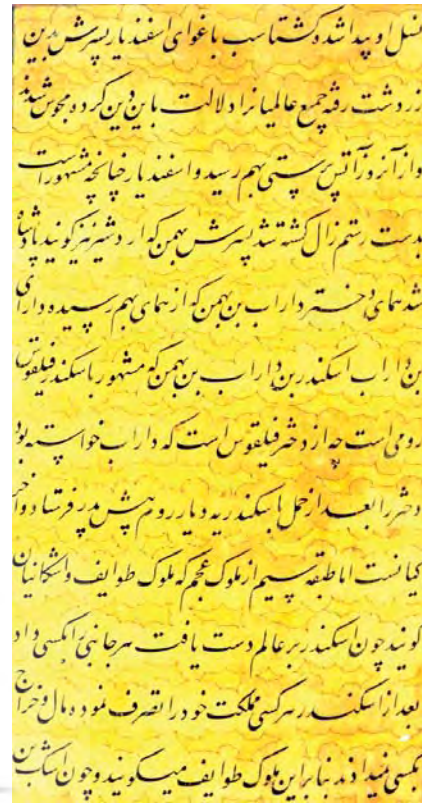 نسل او پیدا شده کشتاسب باغوای اسفندیار پسرش بدین
زردشت رفته جمیع عالمیانرا دلالت باین دین کرده مجوش شدند
واز آنروز آتش پرستی بهم رسید و اسفندیار چنانچه مشهور است
بدست رستم زال کشته شد پسرش بهمن که اردشیر نیز کویند پادشاه
شد همای دختر داراب بن بهمن که از همای بهم رسیده دارای
بن داراب اسکندر بن داراب بن بهمن که مشهور باسکندر فیلقوس
رومی است چه از دختر فیلقوس است که داراب خواسته بود
دختر را بعد از حمل باسکندر به دیار روم پیش پدر فرستاد و آخر
کیانست اما طبقه سیم از ملوک عجم که ملوک طوایف و اشکانیان
کویند چون اسکندر بر عالم دست یافت هر جانبی را بکسی داد
بعد از اسکندر هر کسی مملکت خود را تصرف نموده مال و خراج
بکسی نمیدادند بنابراین ملوک طوایف میکویند و چون اشک بن